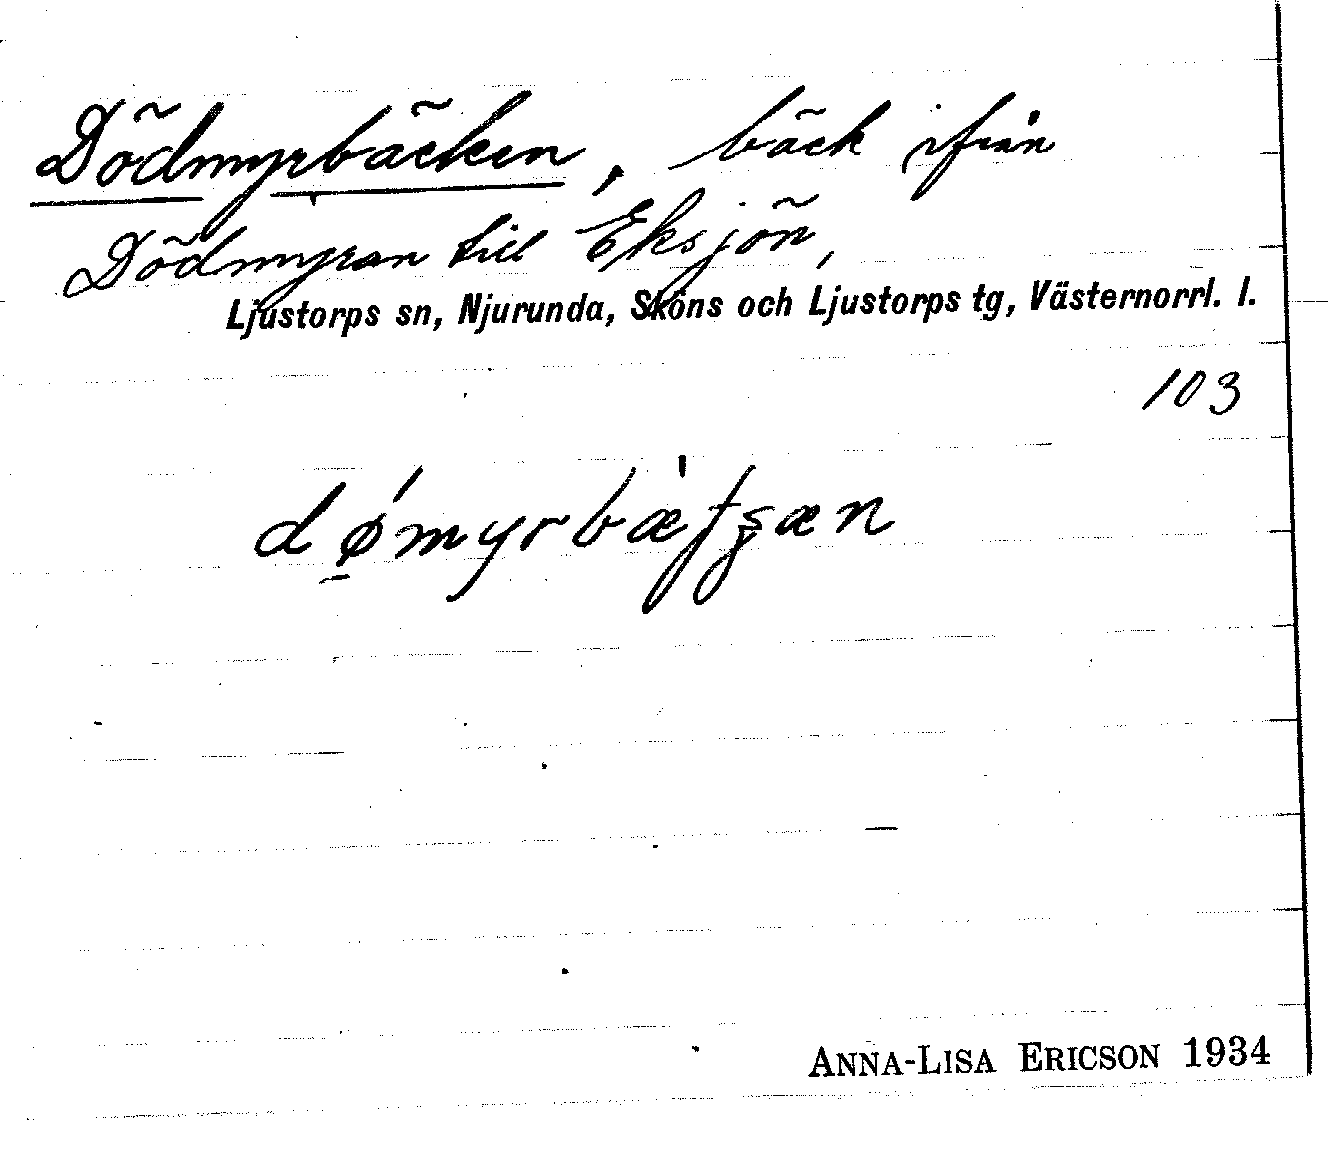 Dödmyrbäcken, bäck ifrån
Dödmyran till Eksjön,
Ljustorps sn, Njurunda, Sköns och Ljustorps tg, Västernorrl. l.
103
ANNA-LISA ERICSON 1934